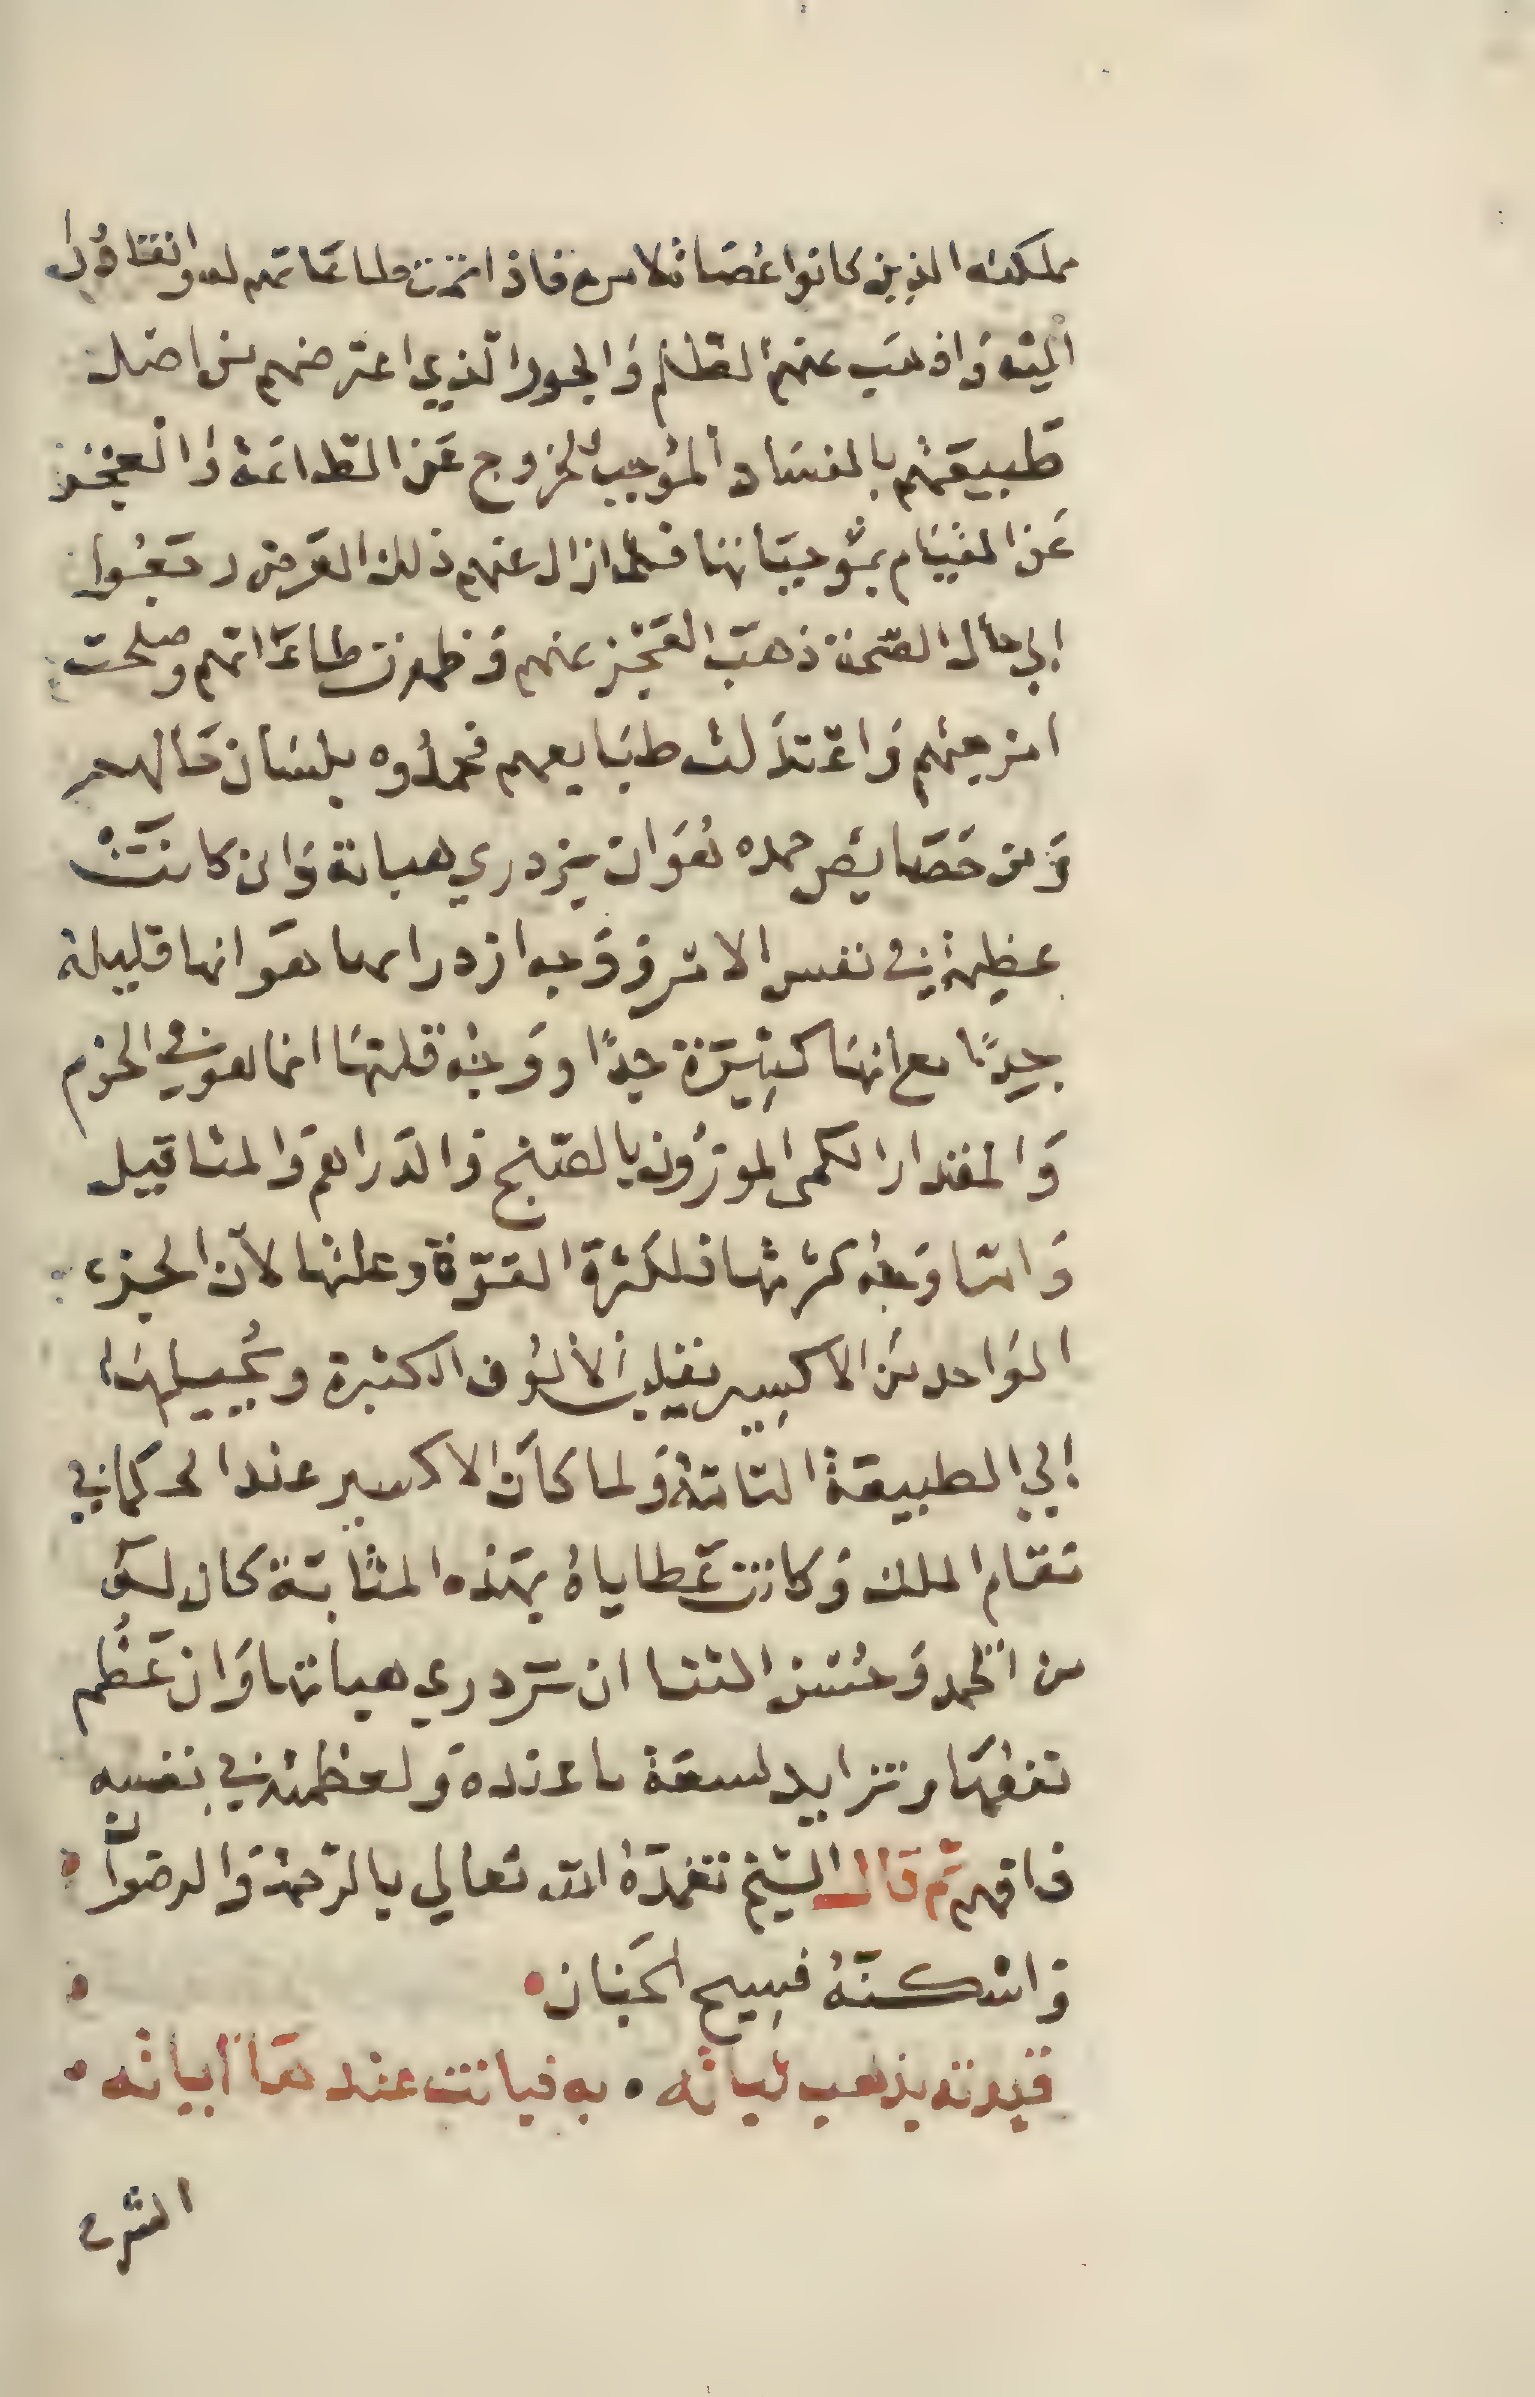 مملكته الذين كانوا عُصَاة لامره فاذا تمت طاعَاتهم له وانقادُوا
اليْه وَاذهَب عنهم الظلم وَالجور الّذي اعترضهم من اصل
طَبيعَتهم بالفسَاد المُوجب للخروج عَن الطّاعَة وَالعجز
عَن القيَام بموجبَاتها فلما زال عنهم ذلك العَرض رجَعُوا
الي حال الصّحة ذهَبَ العَجْز عنهم وَظهرت طاعَاتهم وصلحت
امزجتهم وَاعْتدَلت طبَايعهم فحمدُوه بلسَان حَالهم
وَمن خصَايص حمده هُوَ ان يزدري هباته وَان كانَتْ
عظيمة في نفس الامر وَوَجه ازدرايها هوَ انها قليلة
جدًا مع انهَا كثِيرَة جدًا ووَجْه قلتهَا انما هو في الجرم
وَالمقدار الكمي الموزُون بالصّنج وَالدَراهم وَالمثاقيل
وَامّا وَجْه كثرتها فلكثرة القوّة وعملها لأن الجزء
الوَاحد من الاكسير يقلب الألوُف الكثيرة ويُحِيلهَا
الي الطبيعَة التامّة وَلما كانَ الاكسير عند الحكما في
مقام الملك وَكانت عَطاياهُ بهَذه المثابَة كان له
من الحمد وَحُسْن الثنا ان يزدري هباتها وَان عَظُم
نفعهَا وتزايد لسعَة ما عنده وَلعظمته في نفسِه
فافهم ثم قال الشيخ تغمدَهُ الله تعالي بالرَحمَة وَالرضوان
وَاسْكنَهُ فسِيح الجَنان
فيزدريه بذهب لبانه • به فبانت عندها ابياته •
الشرح